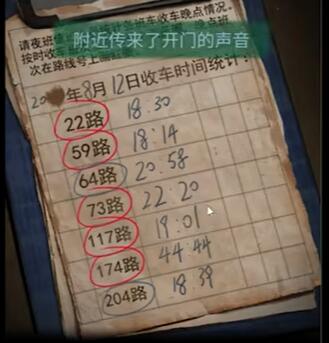 请夜班
附近传来了开门的声音
按时收车
次在路线号上画
20 年8月12日收车时间统计:
22路 18.30
59路 18:14
64路 20:58
73路 22:20
117路 19:01
174路 44:44
204路 18:39